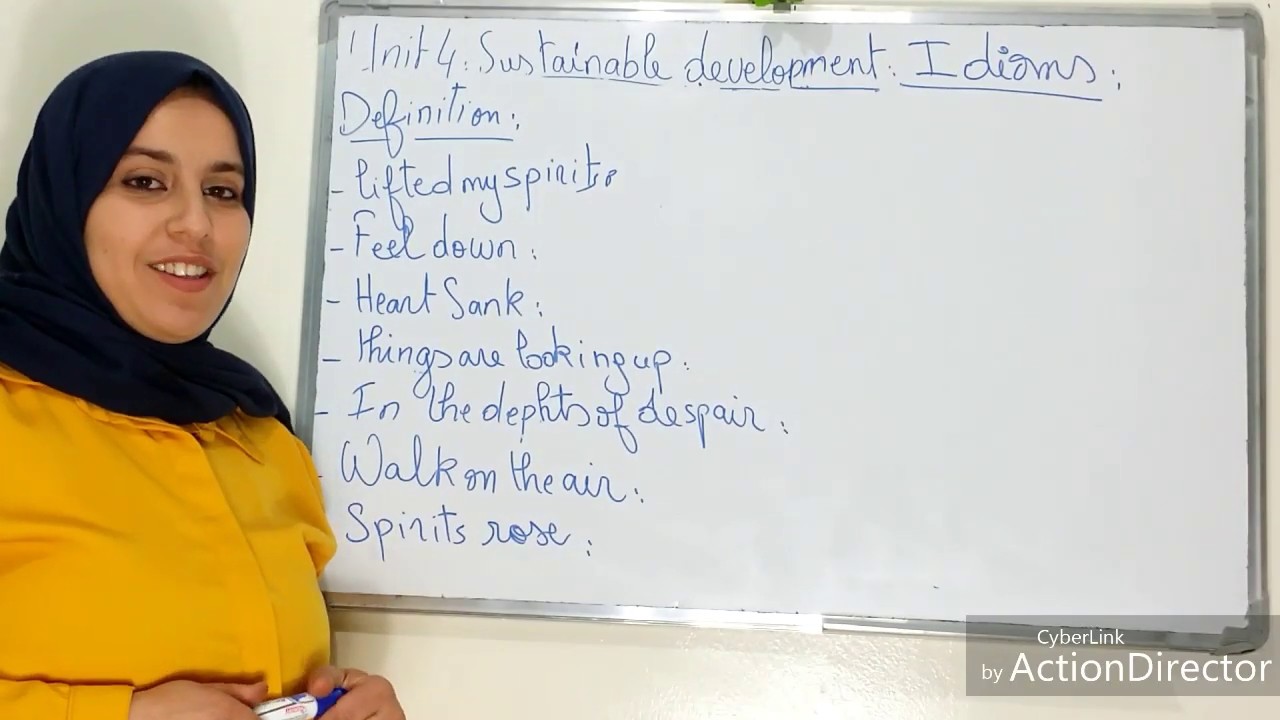 Unit 4: Sustainable development: Idioms:
Definition:
- lifted my spirits:
- Feel down:
- Heart Sank:
- things are looking up:
- In the dephts of despair:
- Walk on the air:
Spirits rose:
CyberLink
by ActionDirector